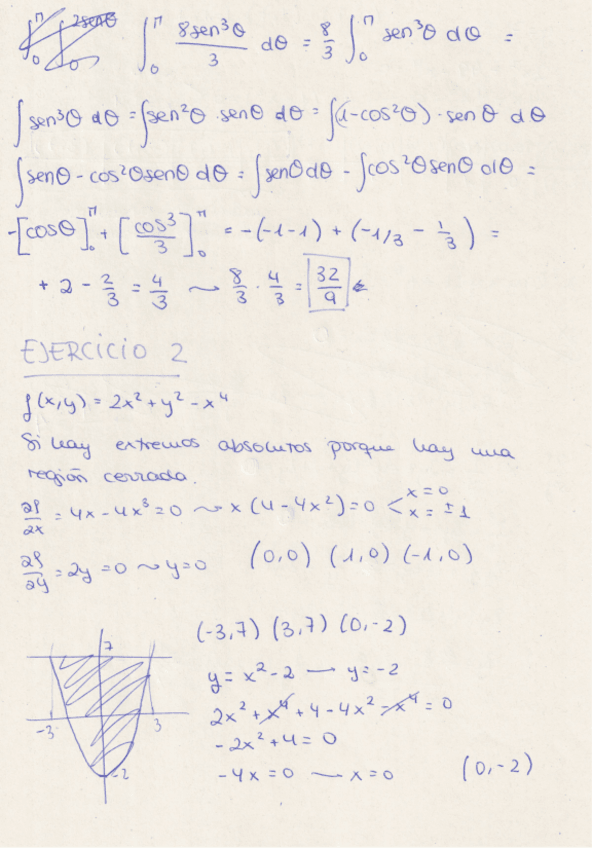 ∫₀^π 2senθ
∫₀^π 8sen³θ/3 dθ = 8/3 ∫₀^π sen³θ dθ =
∫sen³θ dθ = ∫sen²θ · senθ dθ = ∫(1-cos²θ) · senθ dθ
∫senθ - cos²θsenθ dθ = ∫senθdθ - ∫cos²θsenθ dθ =
-[cosθ]₀^π + [cos³/3]₀^π = -(-1-1) + (-1/3 - 1/3) =
+ 2 - 2/3 = 4/3 ~ 8/3 · 4/3 = 32/9
EJERCICIO 2
f(x,y) = 2x² + y² - x⁴
Si hay extremos absolutos porque hay una
región cerrada.
∂f/∂x = 4x - 4x³ = 0 ~ x(4 - 4x²) = 0 < x = 0 x = ±1
∂f/∂y = 2y = 0 ~ y=0 (0,0) (1,0) (-1,0)
(-3,7) (3,7) (0,-2)
7
-3
3
-2
y = x² - 2 — y = -2
2x² + x⁴ + 4 - 4x² - x⁴ = 0
- 2x² + 4 = 0
- 4x = 0 — x = 0 (0,-2)